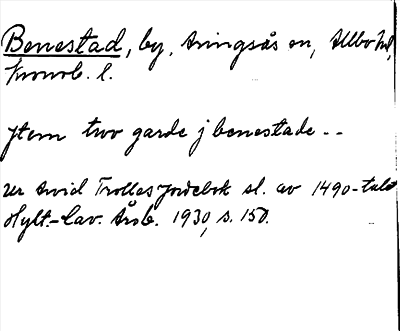 Benestad, by, Aringsås sn, Allbo hd,
Kronob. l.
Jtem two garde j benestade --
Ur Arvid Trolles Jordebok sl. av 1490-talet
Hylt.-Cav. Årsb. 1930, s. 150.